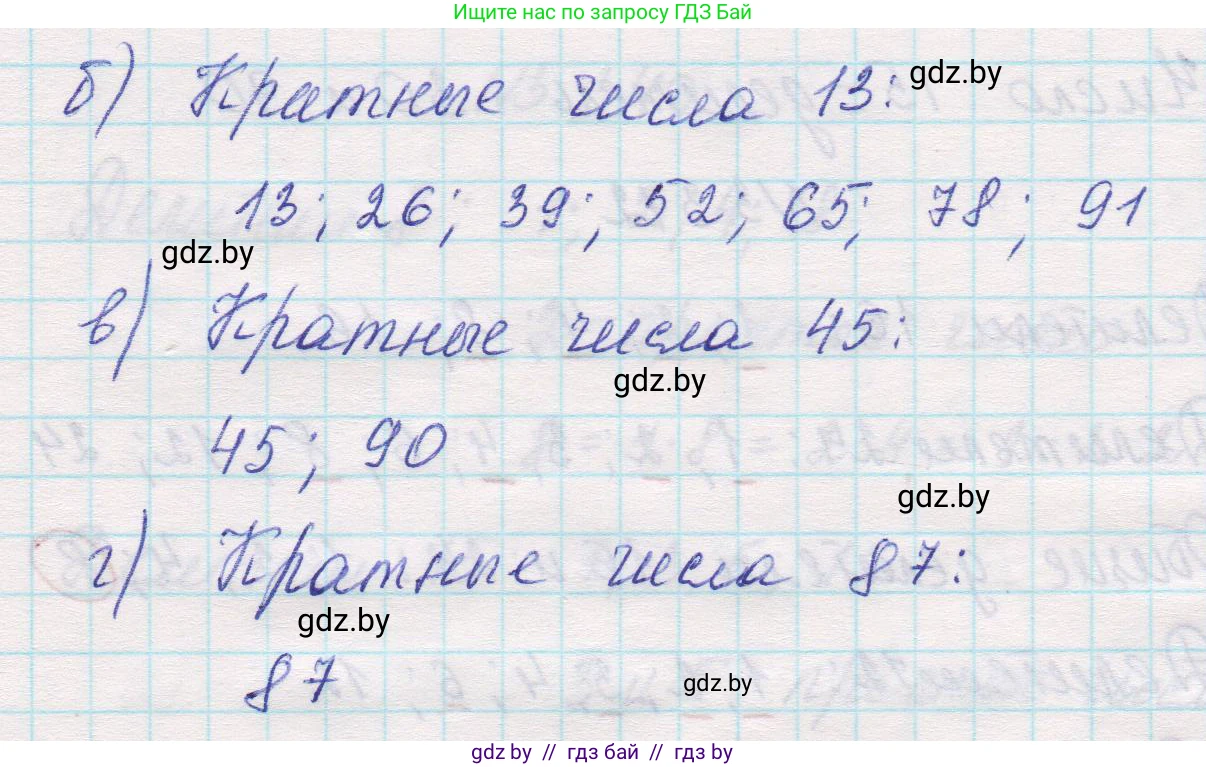 Ищите нас по запросу ГДЗ Бай
б) Кратные числа 13:
gdz.by
13; 26; 39; 52; 65; 78; 91
gdz.by
в) Кратные числа 45:
gdz.by
45; 90
gdz.by
г) Кратные числа 87:
gdz.by
87
gdz.by
gdz.by // гдз бай // гдз by